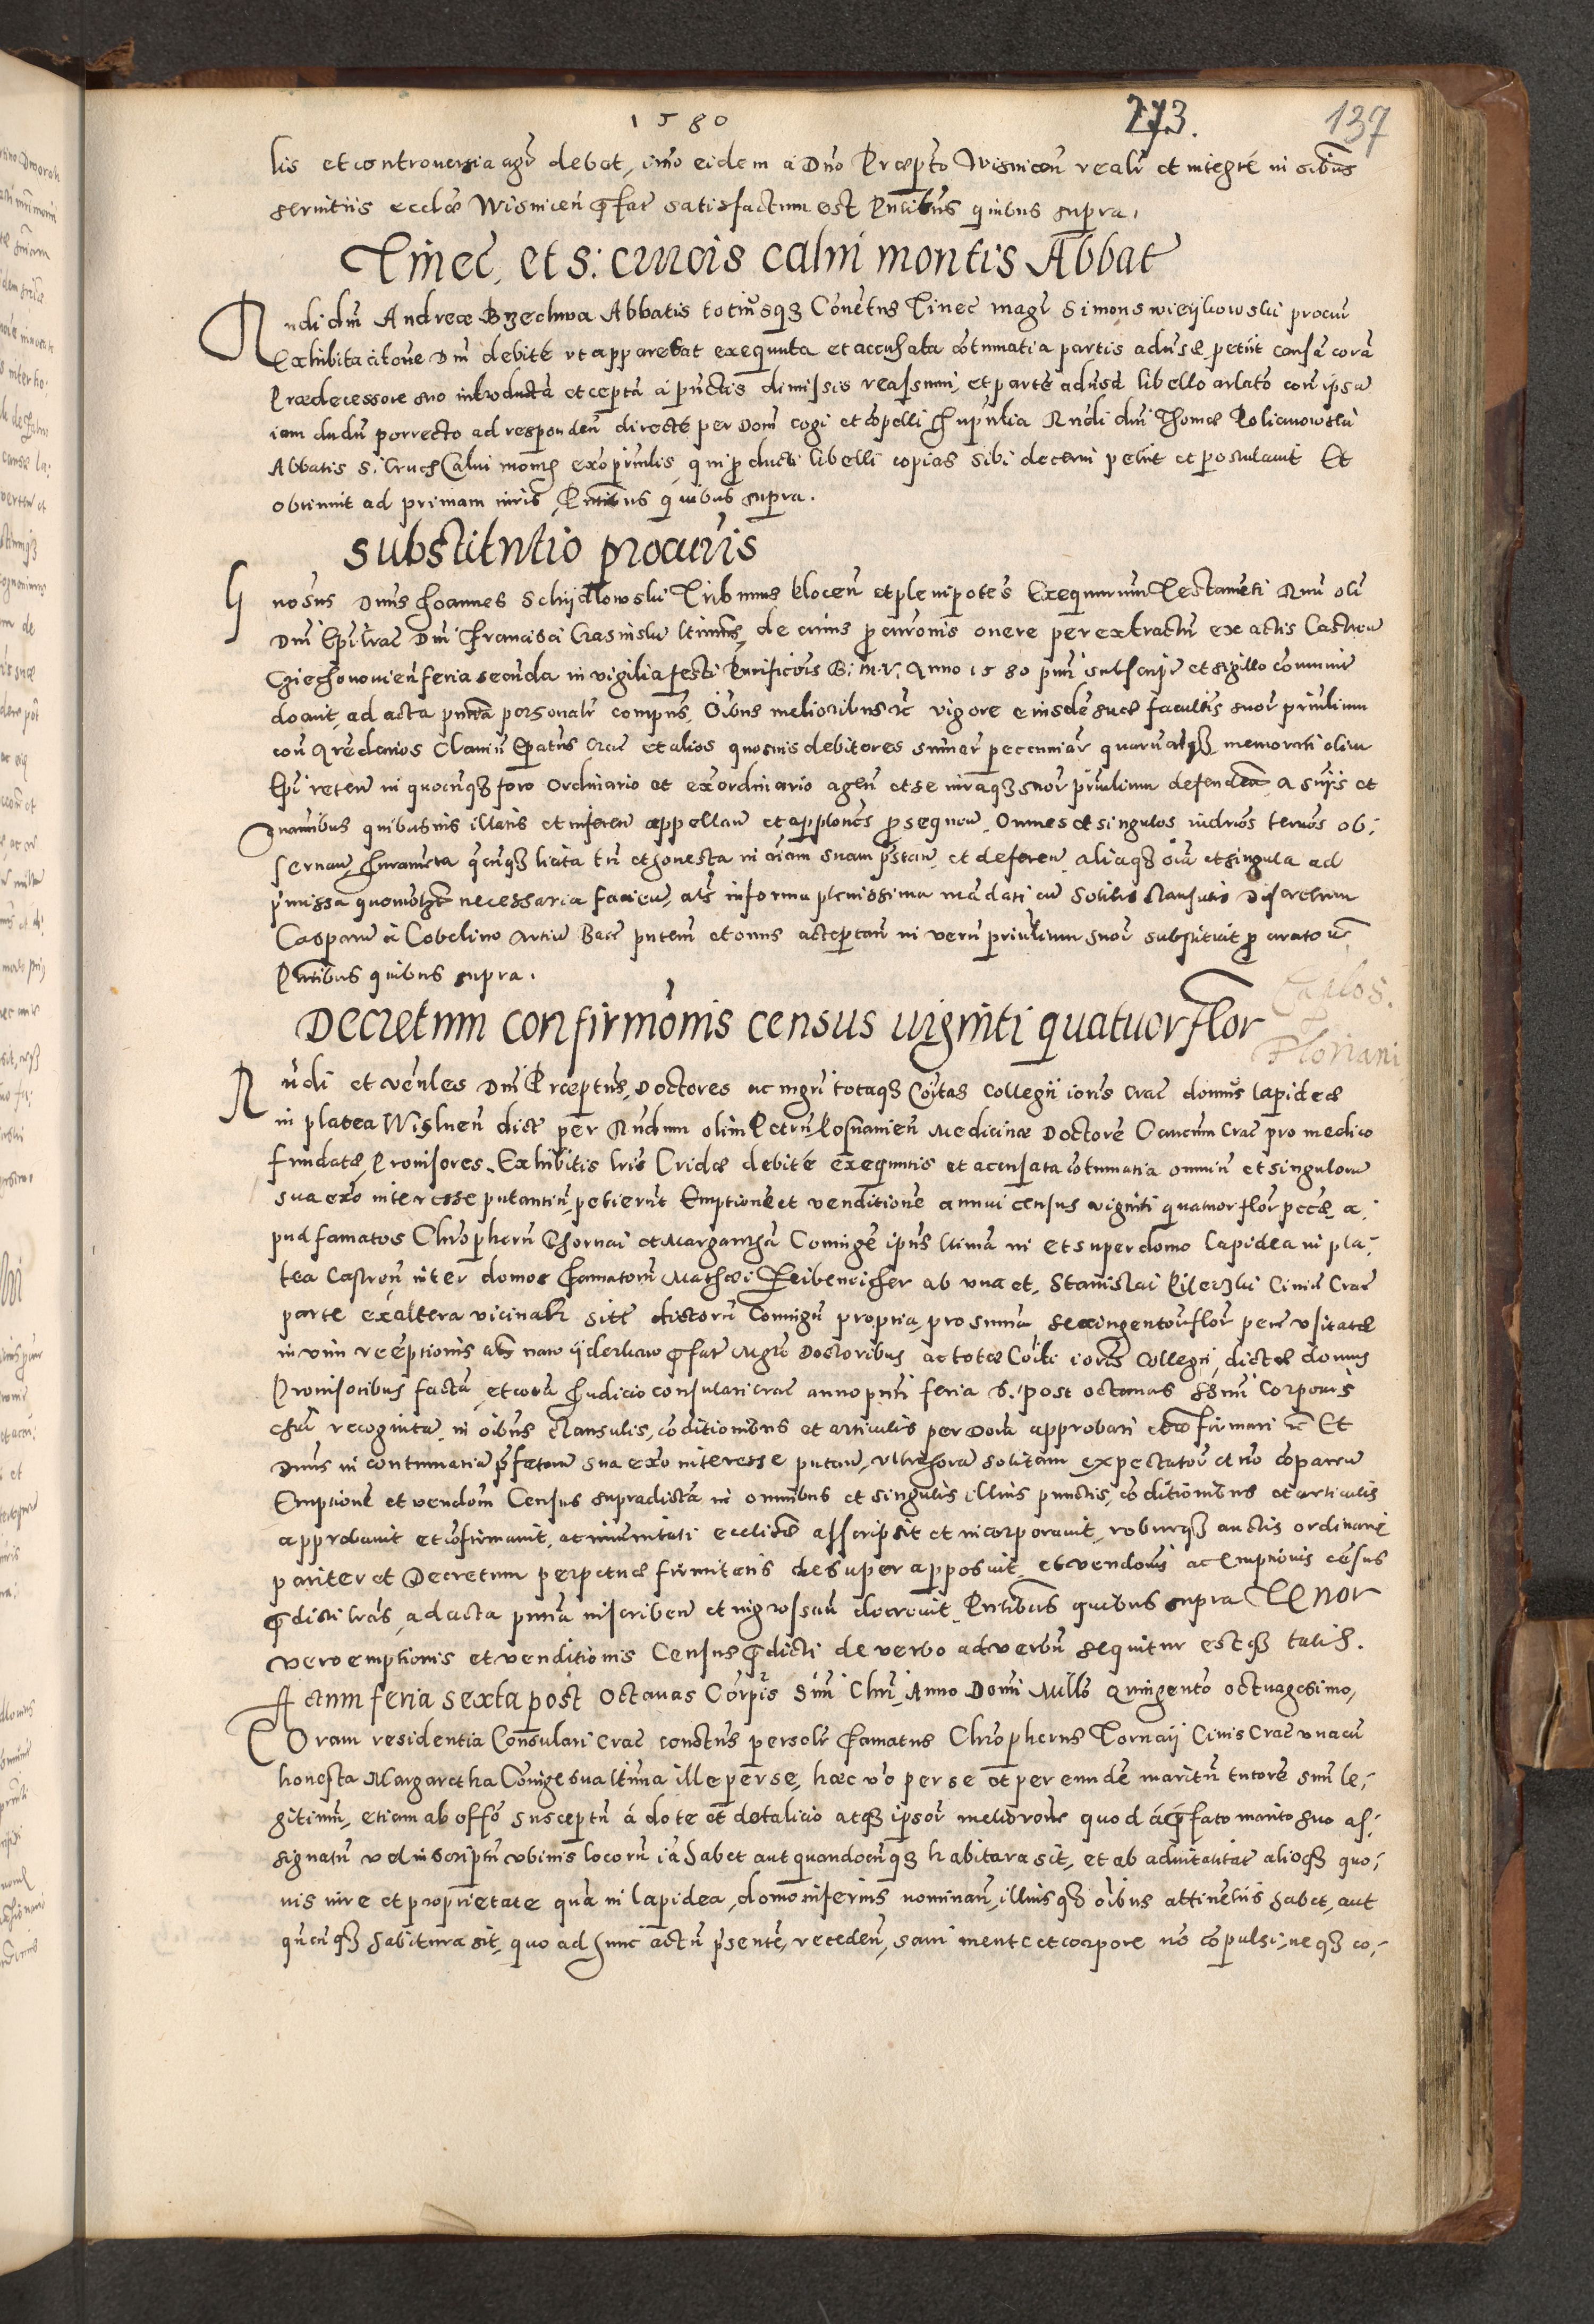 1580
273.
137
lis et controversia agi debet, imo eidem a Dno Præpto Wisnicen realr et integré in oibus
servitiis ecclæ Wisnicen pfat satisfactum est Pntibus quibus supra.
Tinec, et S: crucis calui montis Abbat
Rndi dni Andreæ Brzechwa Abbatis totiusq3 Conetus Tinec magr Simon Swieijkowski procur
Exhibita citone Dni debité ut apparebat exequuta et accusata cotumatia partis aduse petiit causa cora
Prædecessore suo introducta et cepta a punctis dimissis reassumi, et parte adusa libello articlato con ipsa
iam dudu porrecto ad responden directé per Dom cogi et copelli
Abbatis S. Crucis Calui montis exo primlis, qui p ducti libelli copias sibi decerni petiit et postulauit Et
obtinuit ad primam iuris, Pntibus quibus supra.
Substitutio procuris
Gnosus Dnus Joannes Schijdlowski Tribunus Plocen et plenipotes Exequutorum Testameti Rmi oli
Dni Epi Crac Dni Francisci Crasinski ltimus, de cuius pcuronis onere per extractu ex actis Castren
Cziechonouien feria secunda in vigilia festi Purificois B. M. V. Anno 1580 pnti subscript et sigillo communit
docuit, ad acta pntia personalr compns, Oibus melioribus etc vigore eiusde suæ facultis suor principalium
con Aredarios Clauiu Epatus Crac et alios quosuis debitores summar pecuniar quarucumq3 memorati olim
Epi reten in quocuq3 foro ordinario et exordinario agen et se iuraq3 suor principalium defenden a suijs et
grauaminibus quibusuis illatis et inferen appellan et applones psequen. Omnes et singulos iudrios termos ob-
seruan, Juramenta quecuq3 licita tn et honesta in aiam suam pstan et deferen, aliaq3 oia et singula ad
pmissa quomodolibet necessaria facien, als in forma plenissima madati cu solitis clausulis Discretum
Casparu a Cobelino Artiu Bacc pntem et onus acceptan in veru principalium suor substituit p curatore
Pntibus quibus supra.
Decretum confirmonis census uiginti quatuor flor
Carlos.
Floriani
Rudi et venles Dni Præptus, Doctores ac mgri totaq3 Coitas Collegii ioris Crac domus lapideæ
in platea Wislnen dict per Rndum olim Petru Posnanien Medicinæ Doctore Canonicum Crac pro medico
fundatæ, Prouisores. Exhibitis lris Cridæ debité exequutis et accusata cotumatia omniu et singuloru
sua exo interesse putantiu, petierut Emptione et venditione annui census viginti quatuor flor pecce a-
pud famatos Chrophoru Thornai et Margaretha Coniuge ipius ltima in et super domo lapidea in pla-
tea Castren, inter domos Famatoru Mathei Feibenicher ab una et, Stanislai Pileczki Ciuiu Crac
parte ex altera vicinali sitt dictoru Coniugu propria, pro summa sexingentor flor pecu usitatæ
in vim reemptionis als naw ijderkaw pfat Mgris Doctoribus ac totæ Coitti ioris Collegii, dictæ domus
Prouisoribus facta, et cora Judicio consulari Crac anno pnti feria 6. post octauas ssmi Corporis
chri recognita, in oibus clausulis, coditionibus et articulis per Dom approbari et cofirmari etc Et
Dnus in contumacia pfatoru sua exo interesse putan, ultra hora solitam expectator et no coparen
Emptione et vendom Census supradicta in omnibus et singulis illius punctis, coditionibus et articulis
approbauit et cofirmauit, ac imunitati ecclicæ asscripsit et incorporauit, roburq3 auctis ordinariæ
pariter et Decretum perpetuæ firmitatis desuper apposuit, et vendonis ac Emptionis cesus
pdicti lras, ad acta pntia inscriben et ingrossan decreuit, Pntibus quibus supra Tenor
vero emptionis et venditionis Census pdicti de verbo ad verbu sequitur estq3 talis.
Actum feria sexta post Octauas Corpis Smi Chri Anno Domi Millo Quingento octuagesimo,
Coram residentia Consulari Crac constitutus persolr Famatus Chrophorus Tornaij Ciuis Crac una cu
honesta Margaretha Coniuge sua ltima ille per se, hæc vo per se et per eunde maritu tutore suu le-
gitimu, etiam ab offo susceptu á dote et dotalicio atq3 ipsor meliorone quod á pfato marito suo as-
signatu vel inscriptu ubiuis locoru ia habet aut quandocuq3 habitura sit, et ab aduitalitat alioq3 quo-
uis iure et proprietate qua in lapidea, domo inferius nominan, illiusq3 oibus attinetiis habet, aut
quacuq3 habitura sit, quo ad hunc actu psente, receden, sani mente et corpore no copulsi, neq3 co-